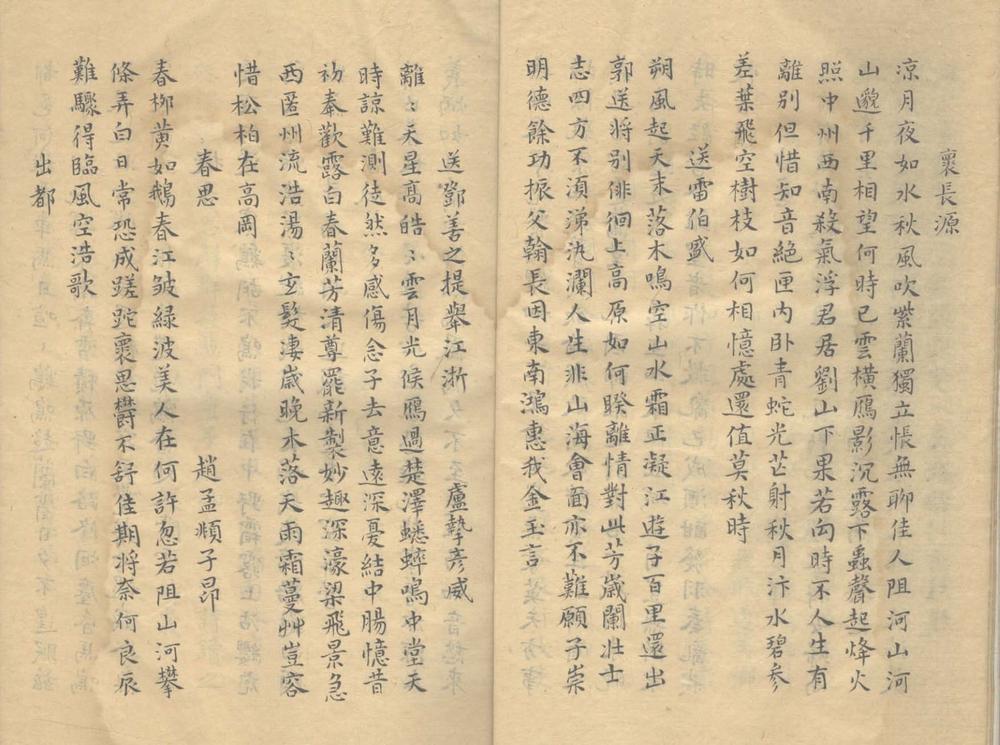 裹長源
涼月夜如水秋風吹紫蘭獨立悵無聊佳人阻河山河
山邈千里相望何時已雲橫鴈影沉露下蟲聲起烽火
照中州西南殺氣浮君居劉山下果若向時不人生有
離別但惜知音絕匣内卧青蛇光芒射秋月汴水碧参
差葉飛空樹枝如何相憶處還值莫秋時
送雷伯盛
朔風起天末落木鳴空山水霜正凝江遊子百里還出
郭送将别徘徊上高原如何暌離情對此芳嵗闌壮士
志四方不湏涕汍瀾人生非山海會面亦不難願子崇
明德餘功振父翰長因東南鴻惠我金玉言
送鄧善之提舉江浙 盧摯彦威
離〻天星髙皓〻雲月光候鴈過楚澤蟋蟀鳴中堂天
時諒難測徒然多感傷念子去意遠深憂結中腸憶昔
初奉歡露白春蘭芳清尊罷新製妙趣深濠梁飛景急
西匿州流浩湯〻玄髮淒嵗晚木落天雨霜蔓艸豈容
惜松柏在高岡
春思 趙孟頫子昂
春柳黄如鵝春江皱緑波美人在何許忽若阻山河攀
條弄白日常恐成蹉跎裹思欝不舒佳期将奈何良辰
難驟得臨風空浩歌
出都